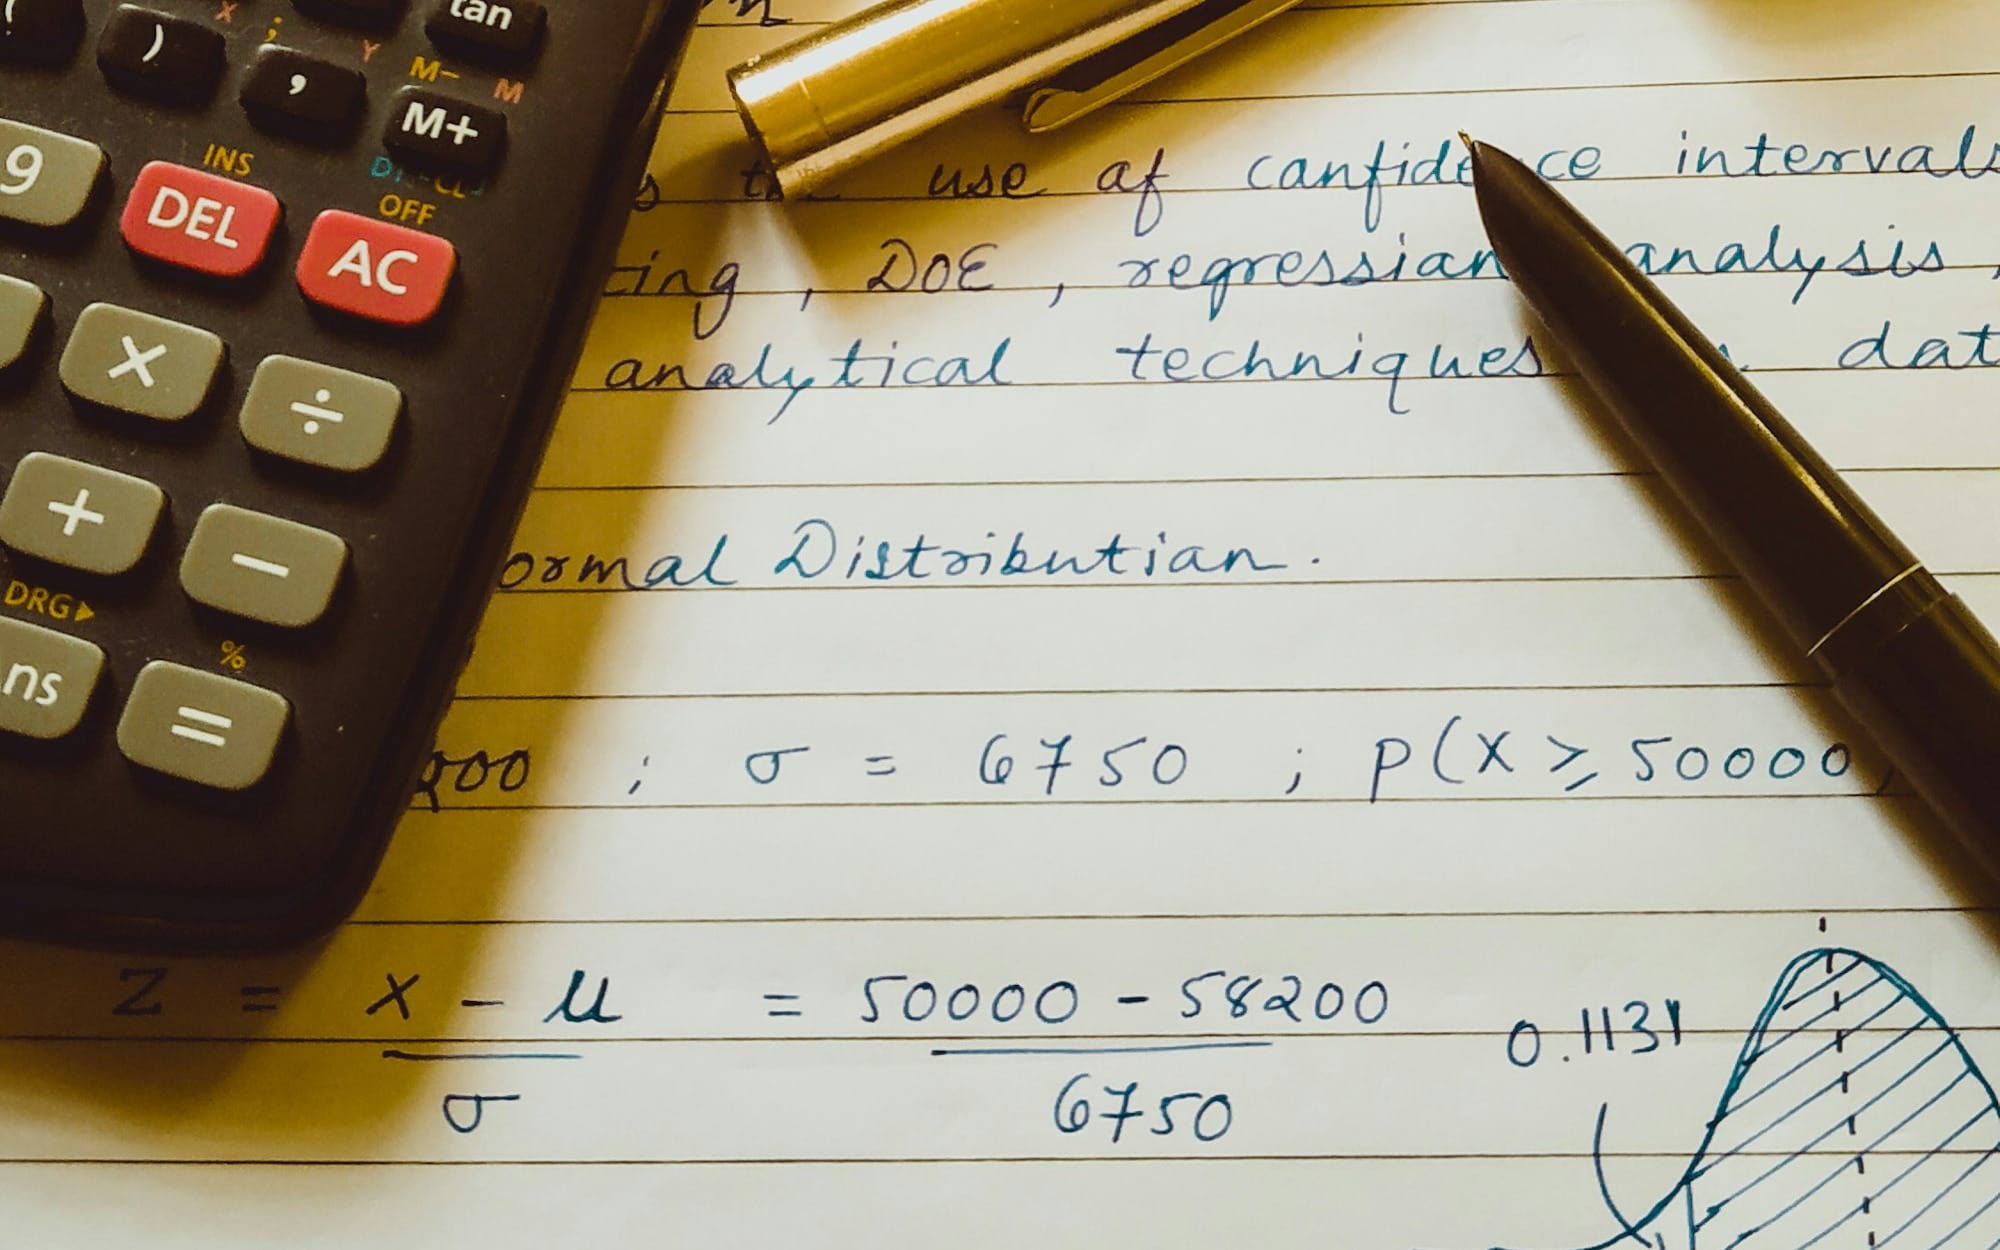 tan
( ) X ; , Y M− M M+
9 INS DEL OFF AC
use of confidence intervals
DOE, regression analysis,
analytical techniques
× ÷
+ −
ormal Distribution.
DRG▶ %
ns =
200 ; σ = 6750 ; P(X ≥ 50000
Z = x − μ = 50000 − 58200
σ 6750